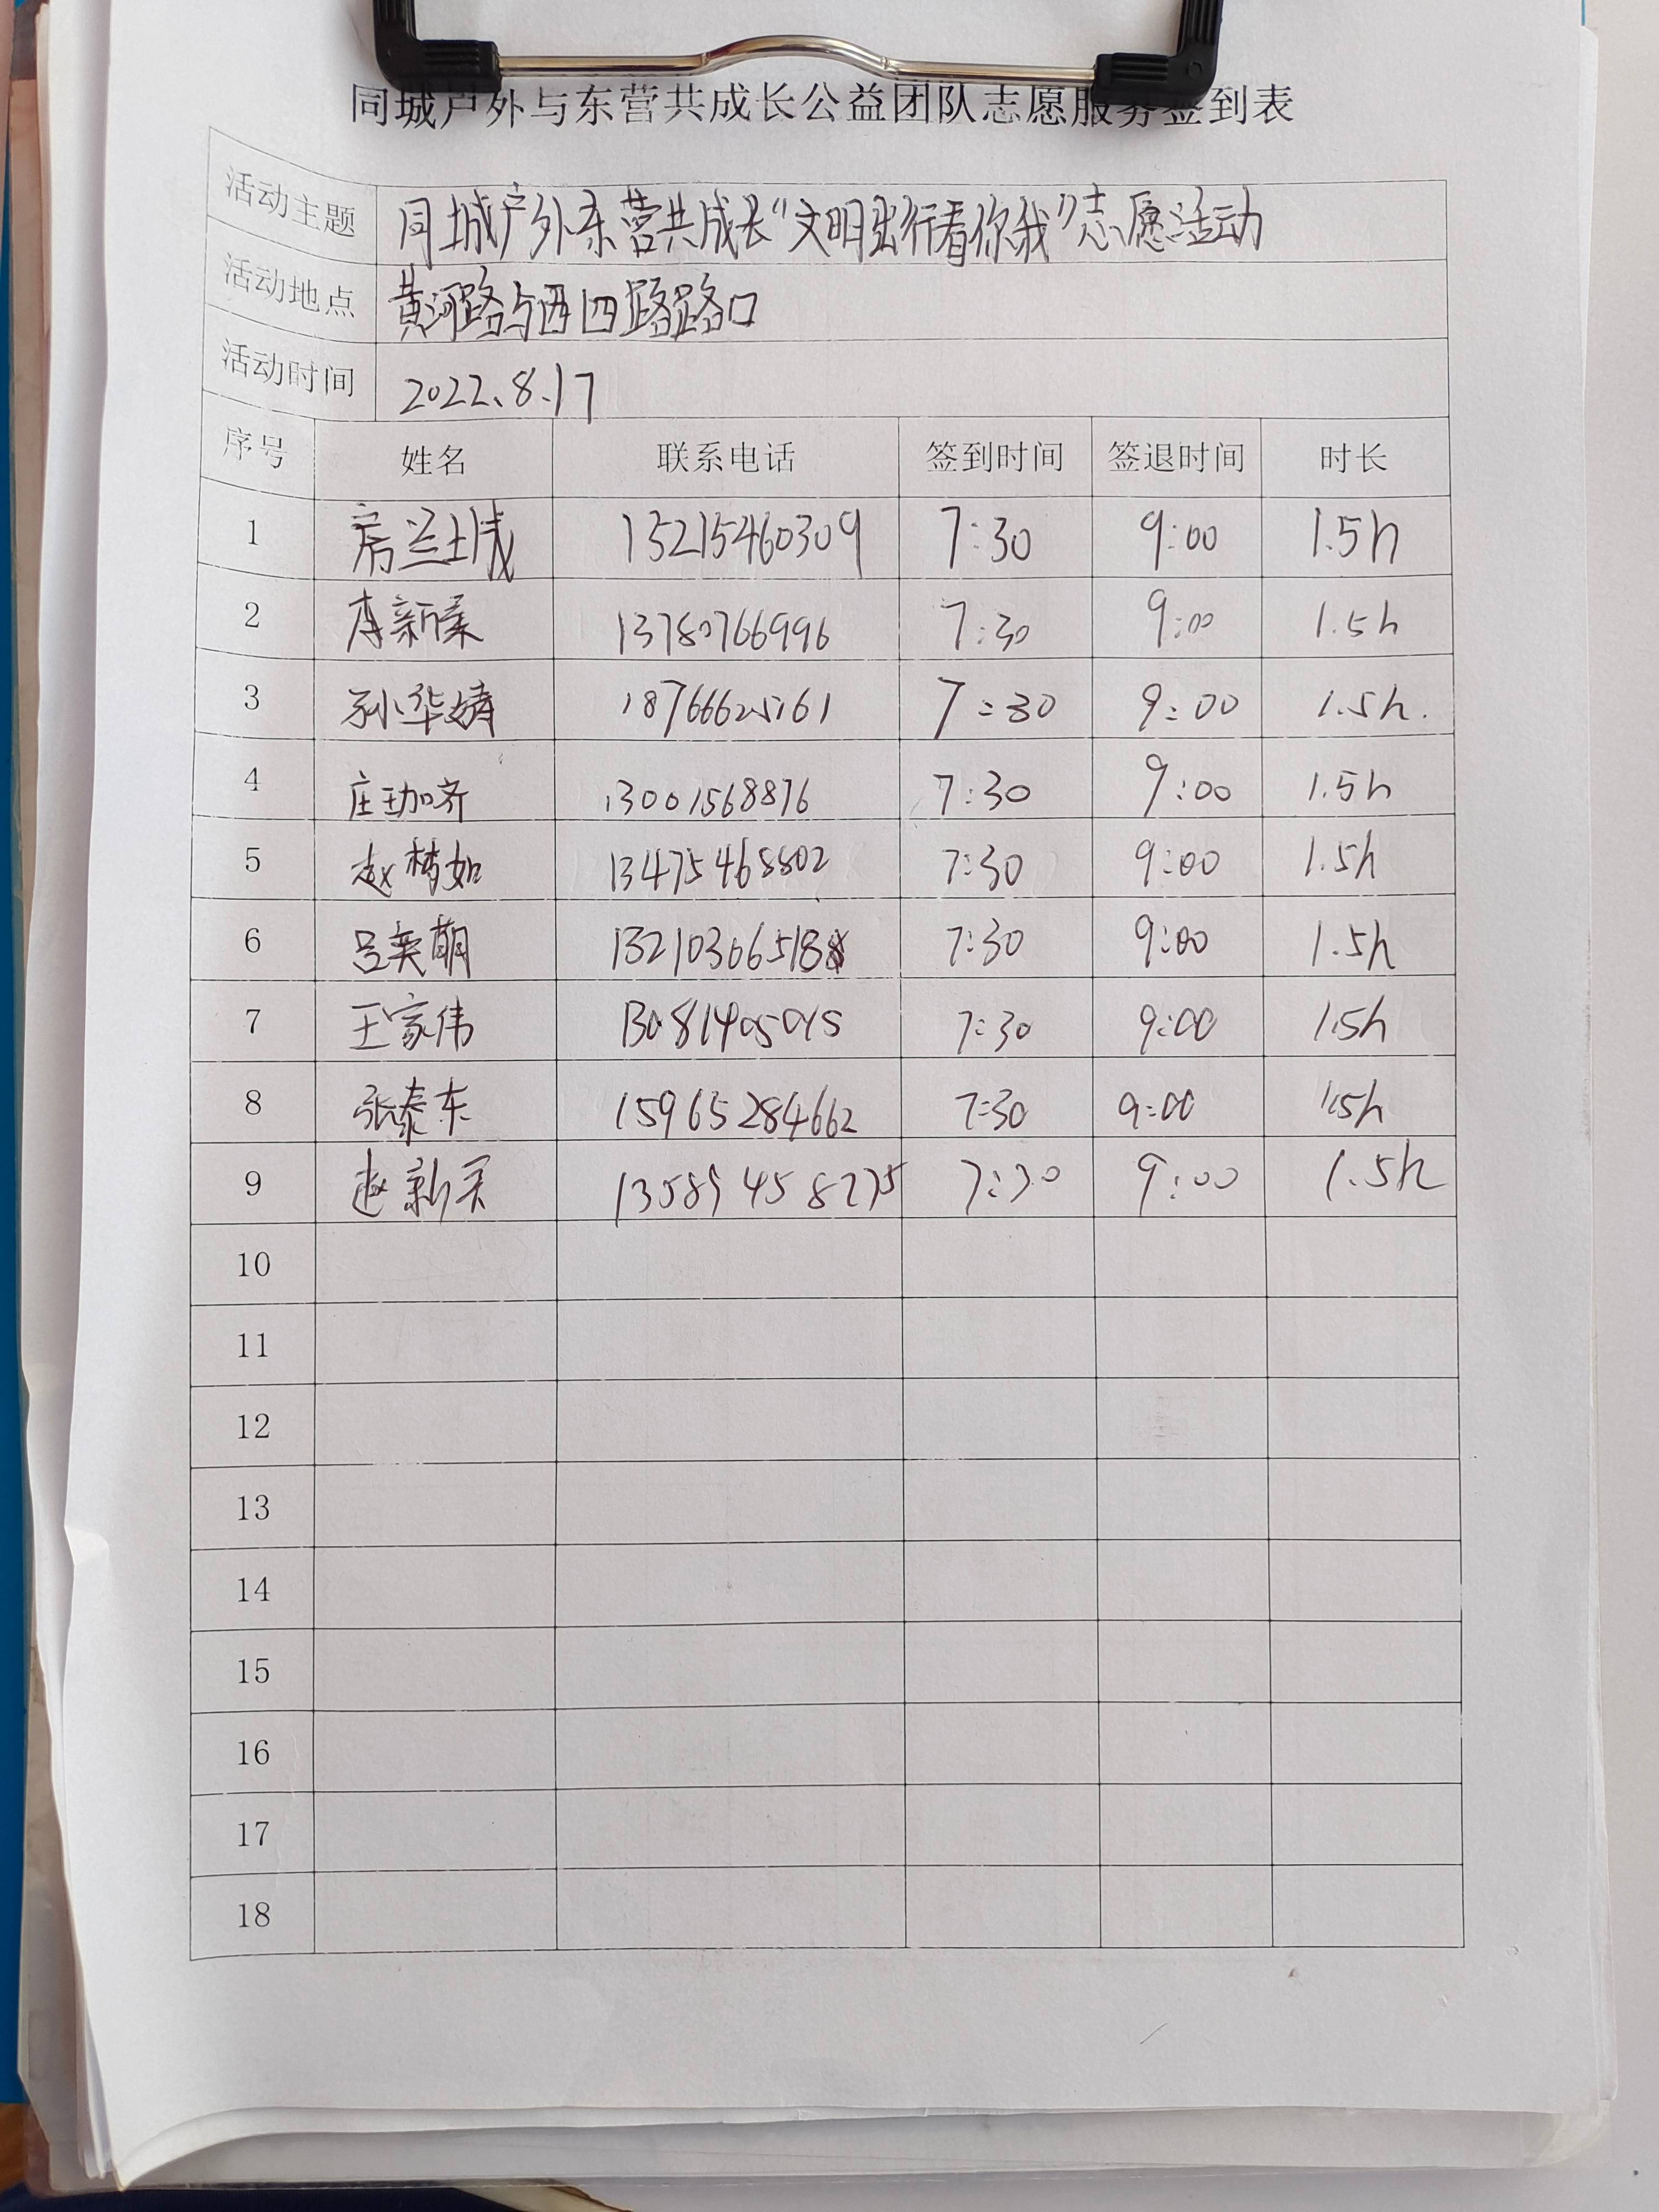 同城户外与东营共成长公益团队志愿服务签到表
活动主题 同城户外东营共成长“文明出行看你我”志愿活动
活动地点 黄河路与西四路路口
活动时间 2022.8.17
序号 姓名 联系电话 签到时间 签退时间 时长
1 房兰城 13215460309 7:30 9:00 1.5h
2 李新 13780766996 7:30 9:00 1.5h
3 孙华婧 18766625161 7:30 9:00 1.5h.
4 庄珈齐 13001568876 7:30 9:00 1.5h
5 赵梦如 13475468802 7:30 9:00 1.5h
6 吕奕萌 7:30 9:00 1.5h
7 王家伟 7:30 9:00 1.5h
8 张泰东 15965284662 7:30 9:00 1.5h
9 赵新 13589458275 7:30 9:00 1.5h
10
11
12
13
14
15
16
17
18